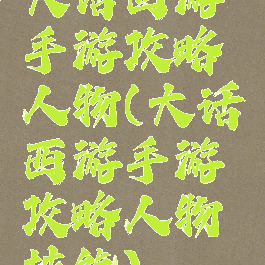 大话西游
手游攻略
人物(大话
西游手游
攻略人物